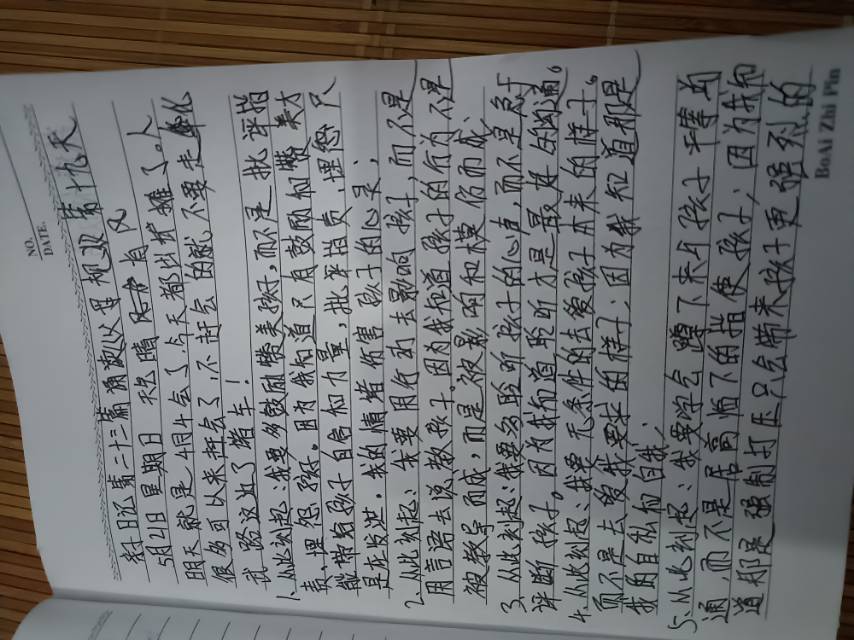 NO.
DATE.
种日记第二十二篇 诵读父母规 第十九天
5月21日 星期日 天气晴 有风
明天就是4月4会了,今天都以扩摊了。人
很多可以来赶会了,不赶会的就不要走
路过出了堵车!
1.从此刻起:我要多鼓励赞美孩子,而不是批评指
责、埋怨孩子。因为我知道只有鼓励和赞美才
能带给孩子自信和力量,批评指责、埋怨只
是在发泄。我的情绪伤害孩子的心灵;
2.从此刻起:我要用行动去影响孩子,而不是
用言语去说教孩子。因为我知道孩子的行为不是
被教导而成,而是被影响和模仿而成;
3.从此刻起:我要多聆听孩子的心声,而不是急于
评断孩子。因为我知道聆听才是最好的沟通。
4.从此刻起:我要无条件的去爱孩子本来的样子。
而不是去爱我要求的样子;因为我知道那是
我的自私和自我;
5.从此刻起:我要学会蹲下来与孩子平等沟
通,而不是居高临下的指使孩子;因为我知
道那是强制打压只会带来孩子更强烈的
BoAi Zhi Pin